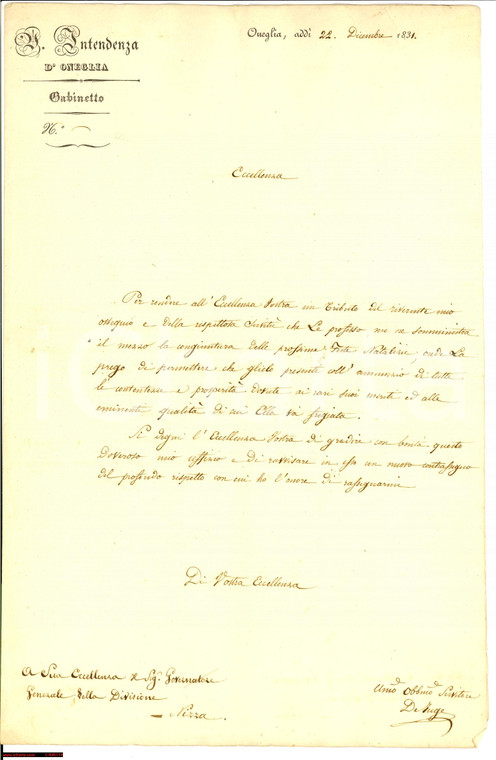 R. Intendenza
D' ONEGLIA
Gabinetto
N.°
Oneglia, addì 22. Dicembre 1831.
Eccellenza
Per rendere all' Eccellenza Vostra un tributo del riverente mio
ossequio e della rispettosa servitù che Le professo me ne somministra
il mezzo la congiuntura delle prossime Feste Natalizie, onde La
prego di permettere che glielo presenti coll' annunzio di tutte
le contentezze e prosperità dovute ai rari suoi meriti ed alle
eminenti qualità di cui Ella va fregiata.
Si degni l' Eccellenza Vostra di gradire con bontà questo
doveroso mio uffizio e di ravvisare in esso un nuovo contrassegno
del profondo rispetto con cui ho l' onore di rassegnarmi
Di Vostra Eccellenza
A Sua Eccellenza il Sig.r Governatore
Generale della Divisione
Nizza.
Umo Obbmo Servitore